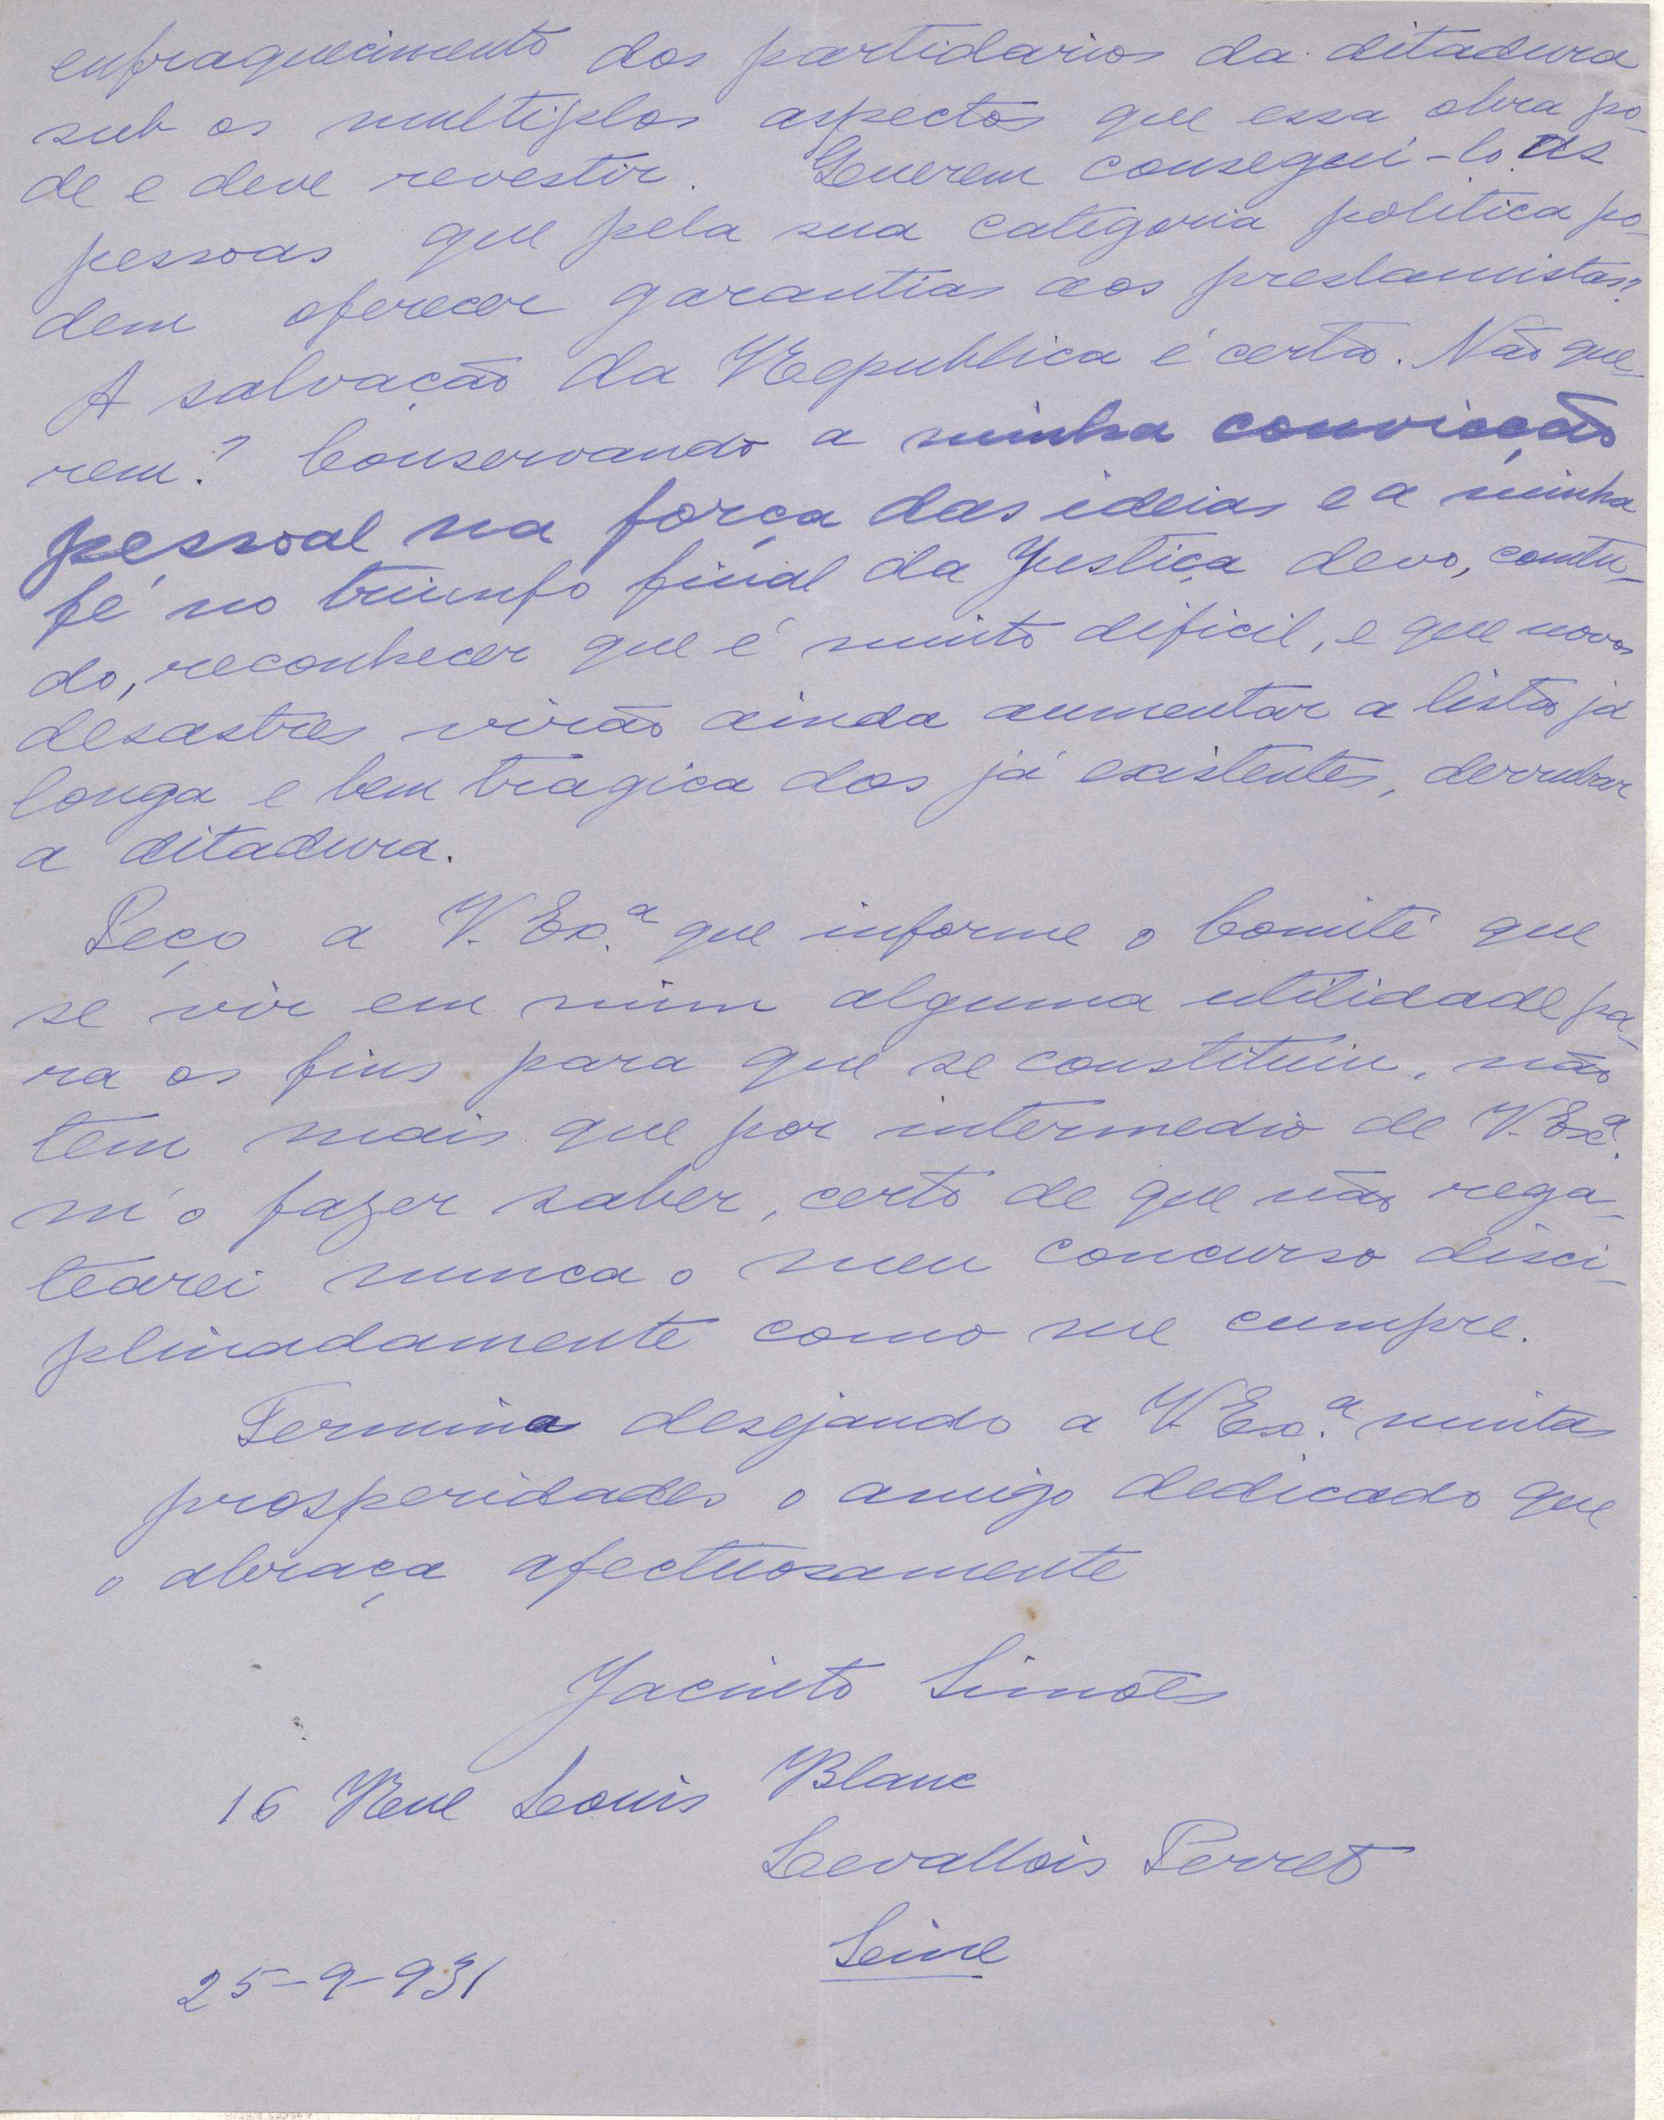 enfraquecimento dos partidarios da ditadura
sub os multiplos aspectos que essa obra po-
de e deve revestir. Querem consegui-lo as
pessoas que pela sua categoria politica po-
dem oferecer garantias aos prestamistas?
A salvação da Republica é certa. Não que-
rem? Conservando a minha convicção
pessoal na força das ideias e a minha
fé no triunfo final da Justiça devo, contu-
do, reconhecer que é muito dificil, e que novos
desastres virão ainda aumentar a lista já
longa e bem tragica dos já existentes, derrubar
a ditadura.
Peço a V. Ex.ª que informe o Comité que
se vir em mim alguma utilidade pa-
ra os fins para que se constituiu, não
tem mais que por intermedio de V. Exª.
m'o fazer saber, certo de que não rega-
tearei nunca o meu concurso disci-
plinadamente como me cumpre.
Termina desejando a V. Ex.ª muitas
prosperidades o amigo dedicado que
o abraça afectuosamente
Jacinto Simões
16 Rue Louis Blanc
Levallois Perret
Seine
25-9-931